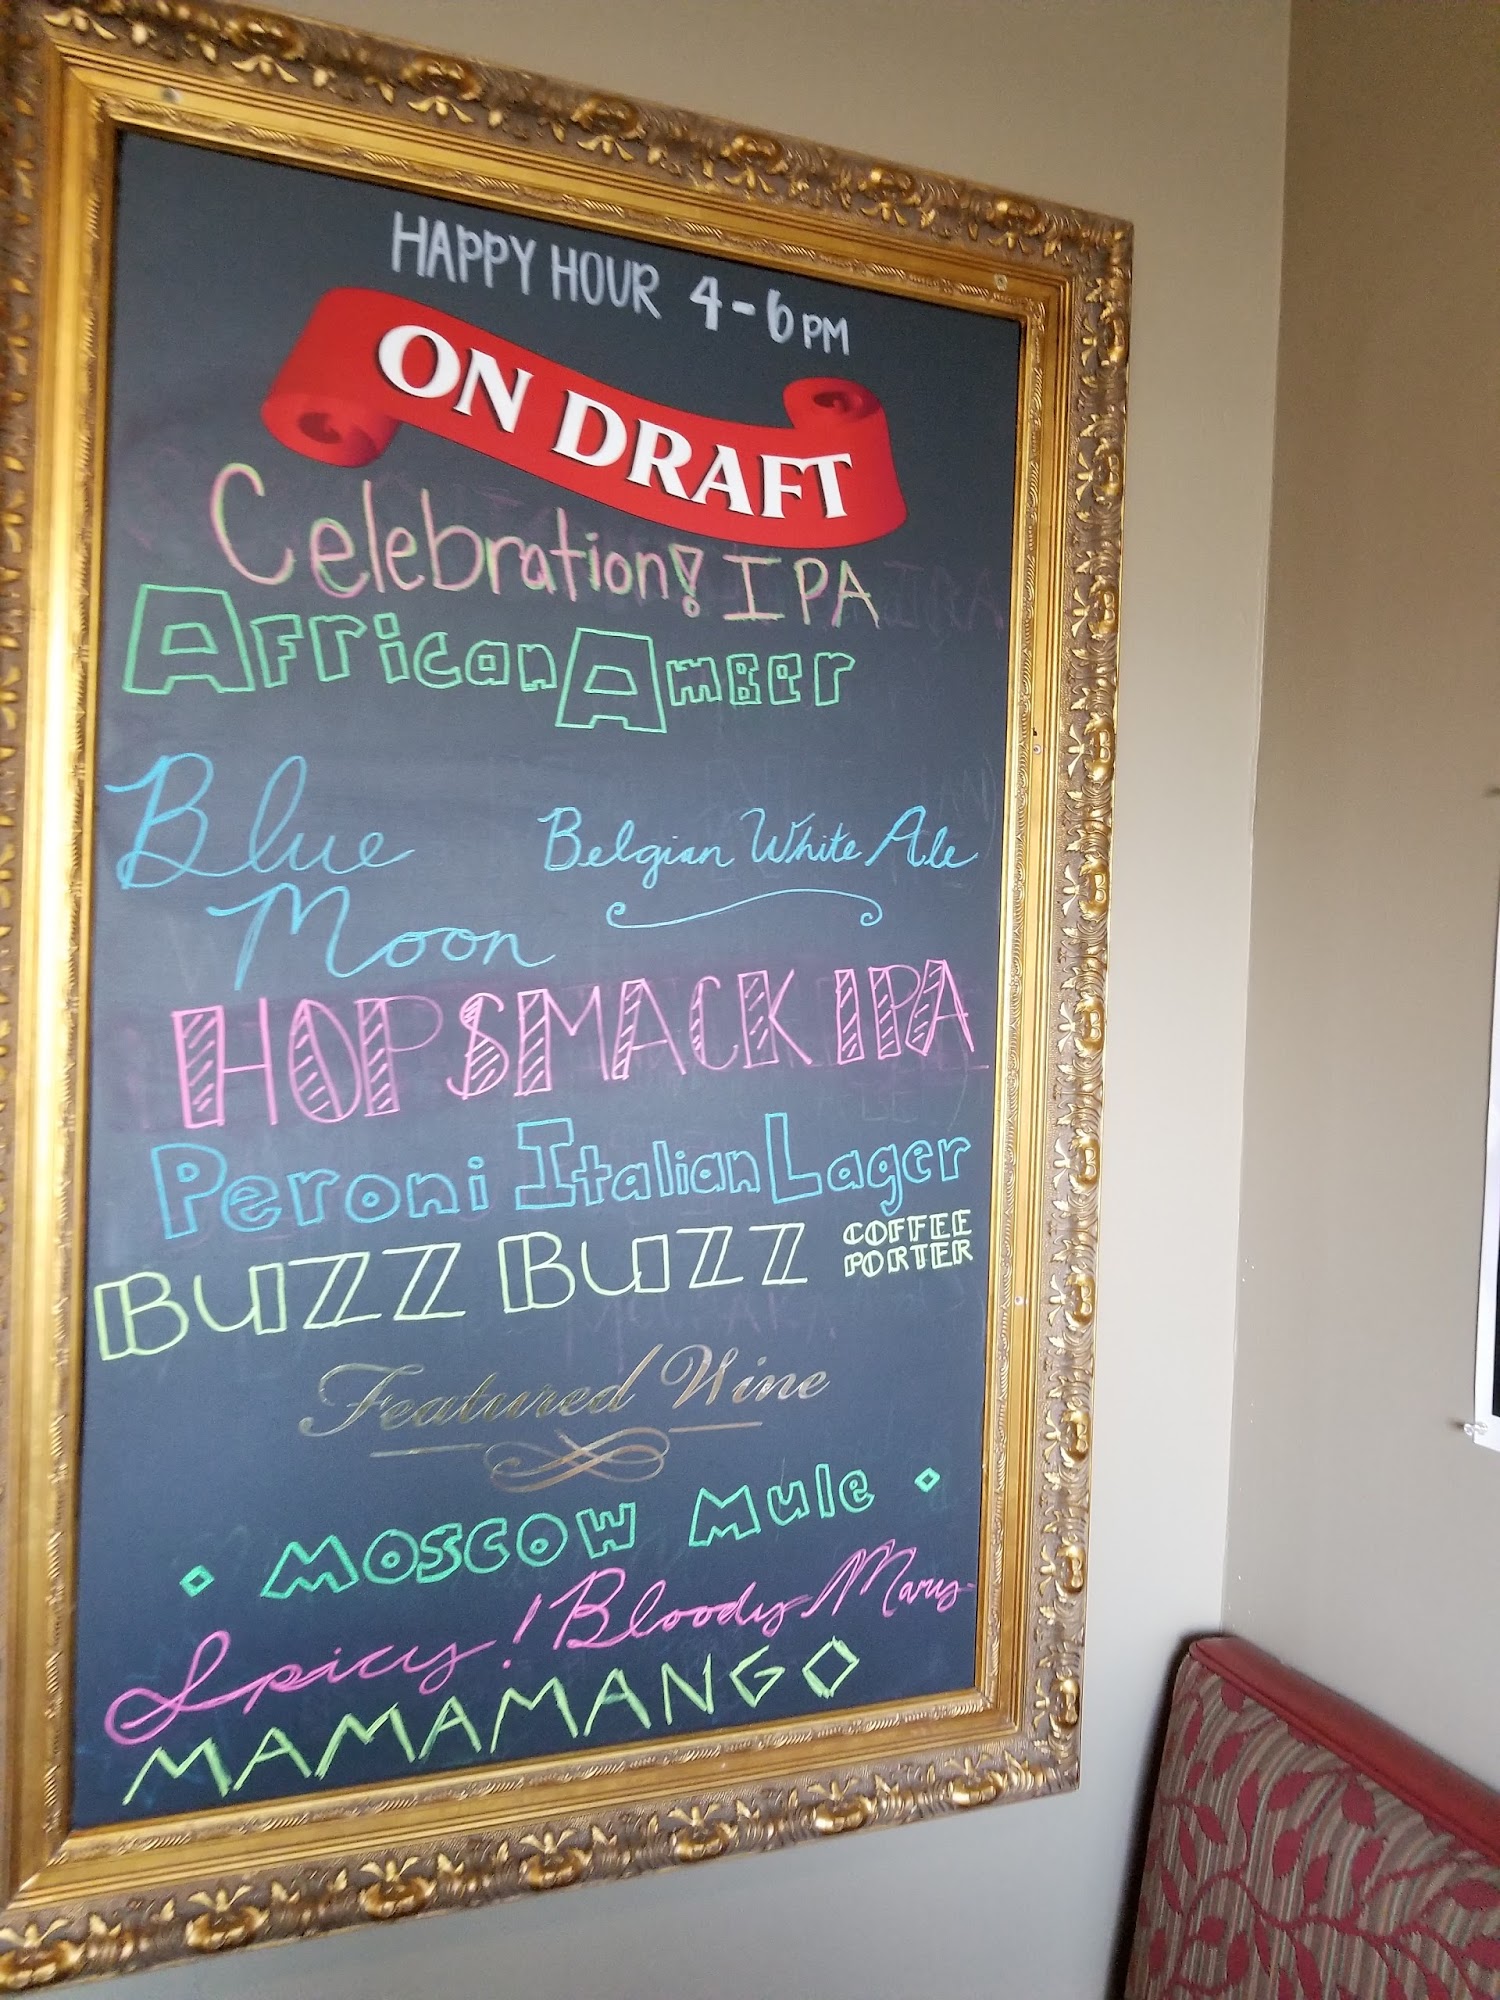 HAPPY HOUR 4-6PM
ON DRAFT
Celebration! IPA
African Amber
Blue Moon Belgian White Ale
HOP SMACK IPA
Peroni Italian Lager
BUZZ BUZZ COFFEE PORTER
Featured Wine
Moscow Mule
Spicy! Bloody Mary
MAMAMANGO